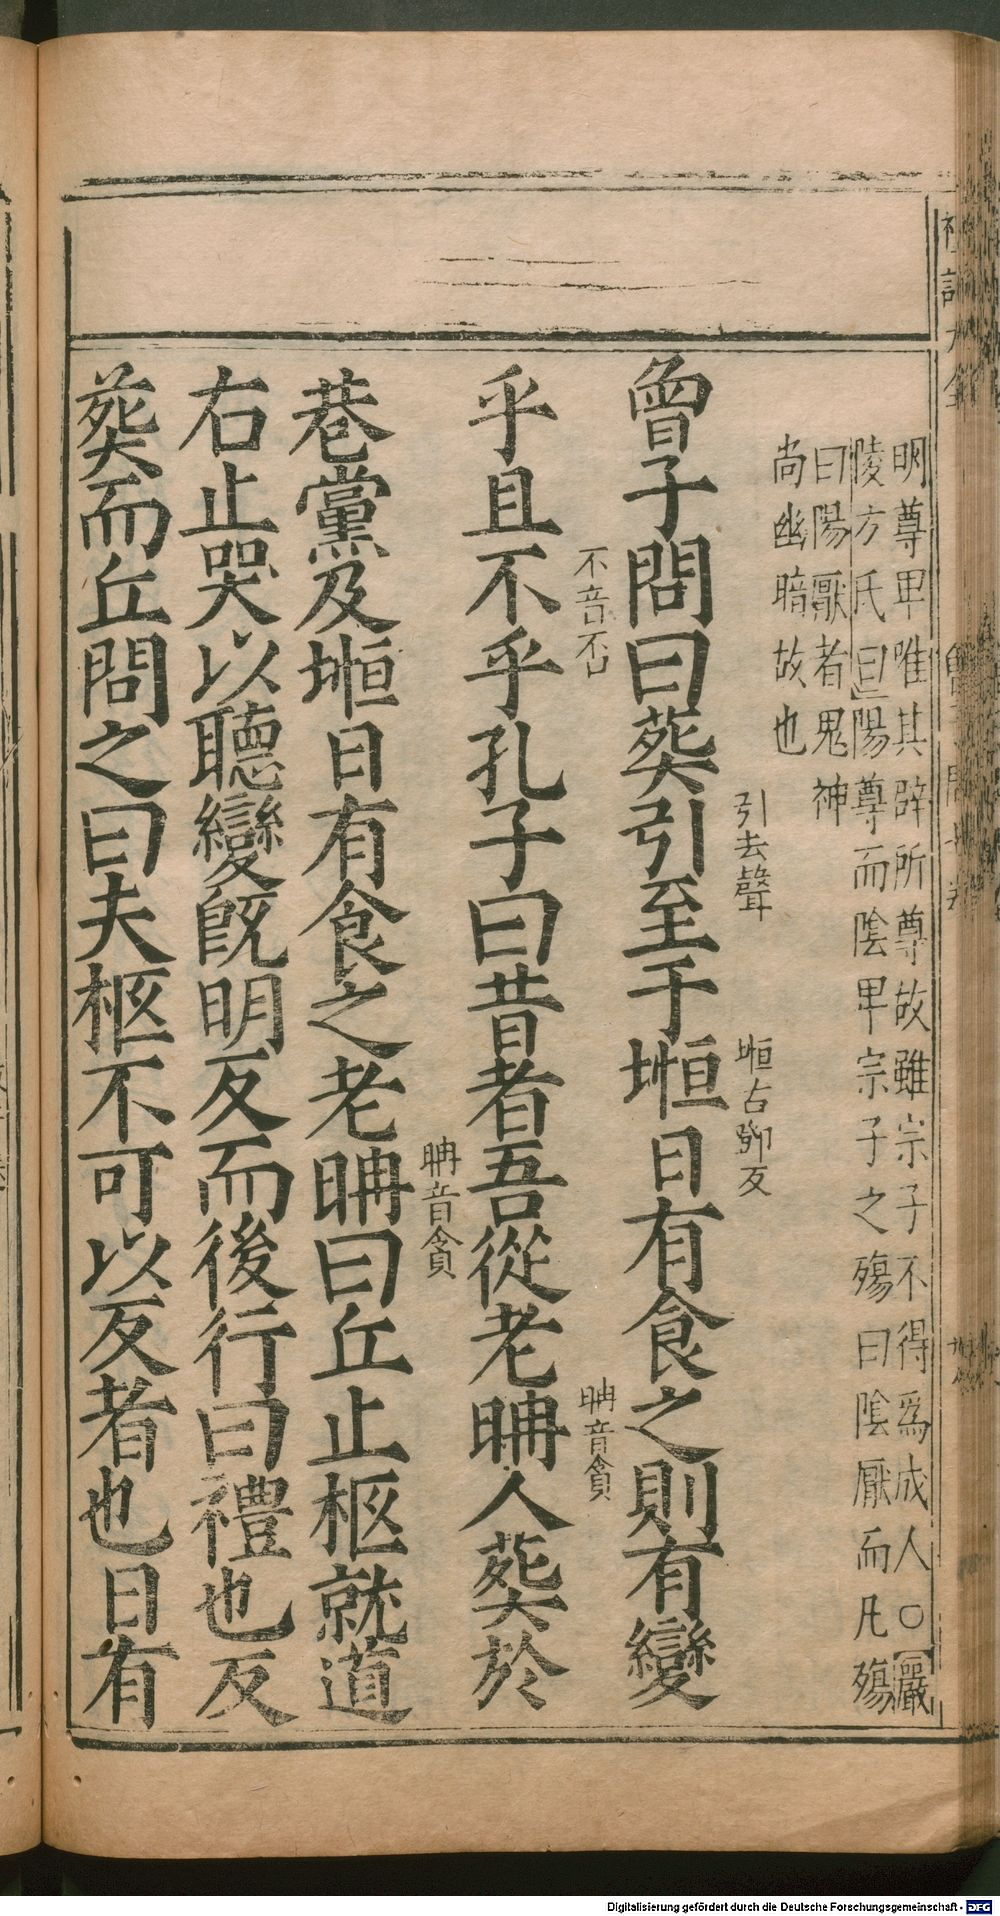 明尊卑唯其辟所尊故雖宗子不得爲成人○嚴
陵方氏曰陽尊而陰卑宗子之殤曰陰厭而凡殤
曰陽厭者鬼神
尚幽暗故也
引去聲
堩古鄧反
曾子問曰葬引至于堩日有食之則有變
不音否
聃音貪
乎且不乎孔子曰昔者吾從老聃人葬於
聃音貪
巷黨及堩日有食之老聃曰丘止柩就道
右止哭以聽變旣明反而後行曰禮也反
葬而丘問之曰夫柩不可以反者也日有
Digitalisierung gefördert durch die Deutsche Forschungsgemeinschaft - DFG